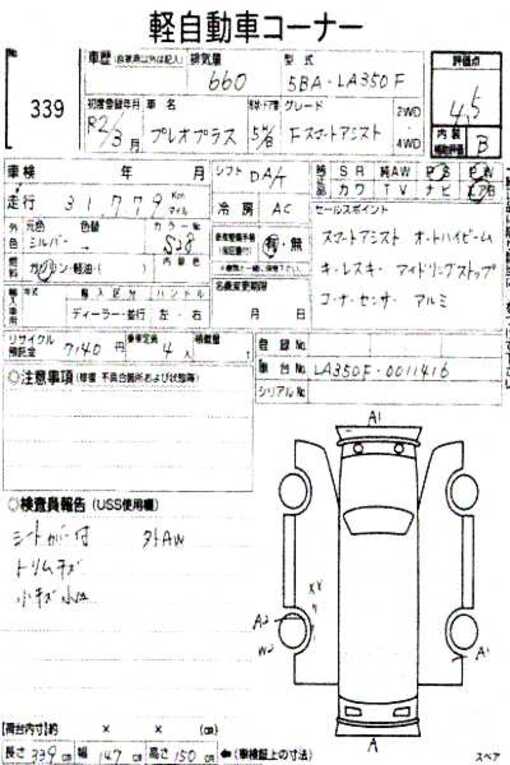 軽自動車コーナー
No 339
車歴 (自家用以外は記入) 排気量 660 型式 5BA-LA350F 評価点 4.5
初度登録年月 R2/3月 車名 プレオプラス 5 グレード Fスマートアシスト 2WD 4WD 内装 補助評価 B
車検 年 月 シフト DA/T SR 純AW PS PW
走行 31,779 Km マイル 冷房 AC 品 カワ TV ナビ エアB
外色 元色 シルバー 色替 → カラーNo. S28 有・無 セールスポイント
燃料 ガソリン・軽油・( ) 内装色
スマートアシスト オートハイビーム
キーレスキー アイドリングストップ
コーナーセンサー アルミ
輸入車用 年式 輸入区分 ディーラー・並行 ハンドル 左・右 名義変更期限 月 日
リサイクル預託金 7140 円 乗車定員 4 人 積載量 t 登録No.
車台No. LA350F-0011416
シリアルNo.
◎注意事項 (修復 不具合箇所および状態等)
◎検査員報告 (USS使用欄)
シートカバー付 社外AW
トリムキズ
小キズ 小凹
A1
A2
W2
A1
A
【荷台内寸】約 × × (cm)
長さ 339 cm 幅 147 cm 高さ 150 cm ←(車検証上の寸法)
スペア